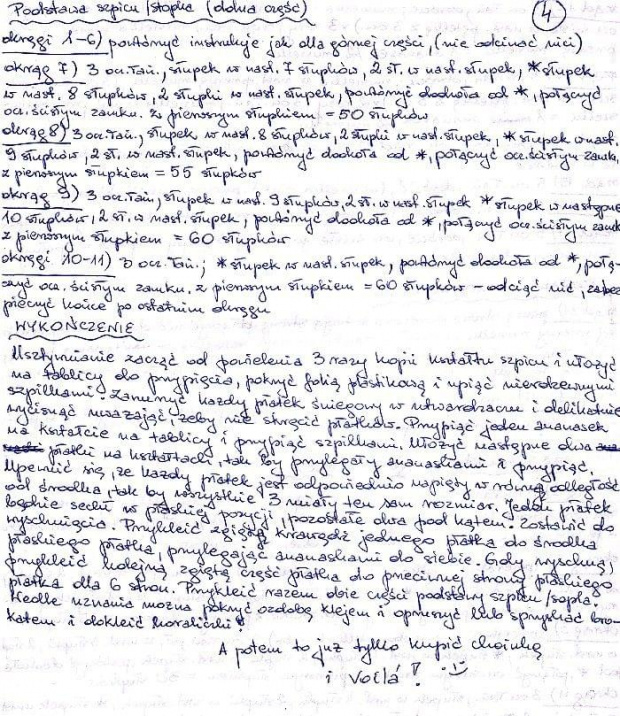 Podstawa szpicu/stopka (dolna część) 4
okręgi 1-6) powtórzyć instrukcje jak dla górnej części, (nie odcinać nici)
okrąg 7) 3 occ. łań., słupek w nast. 7 słupków, 2 st. w nast. słupek, *słupek
w nast. 8 słupków, 2 słupki w nast. słupek, powtórzyć dookoła od *, połączyć
occ. ścisłym zamku. z pierwszym słupkiem = 50 słupków
okrąg 8) 3 occ. łań., słupek w nast. 8 słupków, 2 słupki w nast. słupek, *słupek w nast.
9 słupków, 2 st. w nast. słupek, powtórzyć dookoła od *, połączyć occ. ścisłym zamk.
z pierwszym słupkiem = 55 słupków
okrąg 9) 3 occ. łań., słupek w nast. 9 słupków, 2 st. w nast. słupek *słupek w następne
10 słupków, 2 st. w nast. słupek, powtórzyć dookoła od *, połączyć occ. ścisłym zamk
z pierwszym słupkiem = 60 słupków
okręgi 10-11) 3 occ. łań.; *słupek w nast. słupek, powtórzyć dookoła od *, połą-
czyć occ. ścisłym zamku. z pierwszym słupkiem = 60 słupków - odciąć nić, zabez
pieczyć końce po ostatnim okręgu
WYKOŃCZENIE
Usztywnianie zacząć od powielenia 3 razy kopii kształtu szpicu i ułożyć
na tablicy do przypięcia, pokryć folią plastikową i upiąć nierdzewnymi
szpilkami. Zanurzyć każdy płatek śniegowy w utwardzaczu i delikatnie
wycisnąć uważając, żeby nie skręcić płatków. Przypiąć jeden ananasek
na kształcie na tablicy i przypiąć szpilkami. Ułożyć następne dwa
płatki na kształtach, tak by przylegały ananaskami i przypiąć.
Upewnić się, że każdy płatek jest odpowiednio napięty w równej odległość
od środka, tak by wszystkie 3 miały ten sam rozmiar. Jeden płatek
będzie sechł w płaskiej pozycji, pozostałe dwa pod kątem. Zostawić do
wyschnięcia. Przykleić zgiętą krawędź jednego płatka do środka
płaskiego płatka, przylegając ananaskami do siebie. Gdy wyschną,
przykleić kolejną zgiętą część płatka do przeciwnej strony płaskiego
płatka dla 6 stron. Przykleić razem obie części podstawy szpicu/sopla.
Wedle uznania można pokryć ozdobę klejem i oprószyć lub spryskać bro-
katem i dokleić koraliki!
A potem to już tylko kupić choinkę
i Voilá!